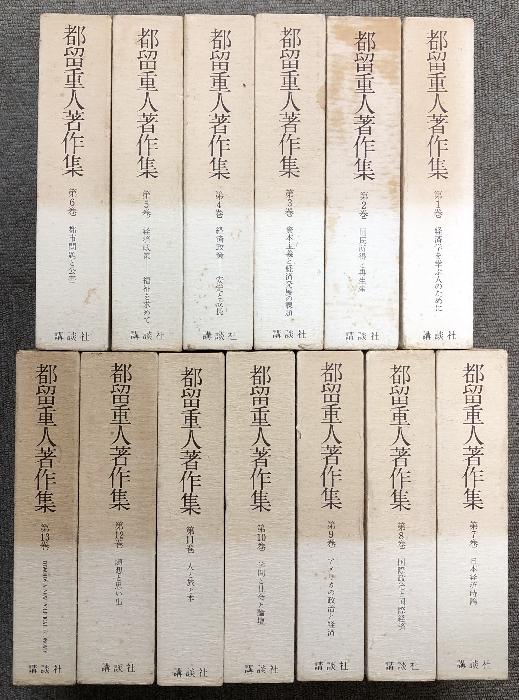 都留重人著作集
第1巻 経済学を学ぶ人のために
講談社
都留重人著作集
第2巻 国民所得と再生産
講談社
都留重人著作集
第3巻 資本主義と経済発展の課題
講談社
都留重人著作集
第4巻 経済政策 安定と成長
講談社
都留重人著作集
第5巻 経済政策 福祉を求めて
講談社
都留重人著作集
第6巻 都市問題と公害
講談社
都留重人著作集
第7巻 日本経済時論
講談社
都留重人著作集
第8巻 国際政治と国際経済
講談社
都留重人著作集
第9巻 アメリカの政治と経済
講談社
都留重人著作集
第10巻 学問と社会と論壇
講談社
都留重人著作集
第11巻 人と旅と本
講談社
都留重人著作集
第12巻 随想と思い出
講談社
都留重人著作集
第13巻
講談社